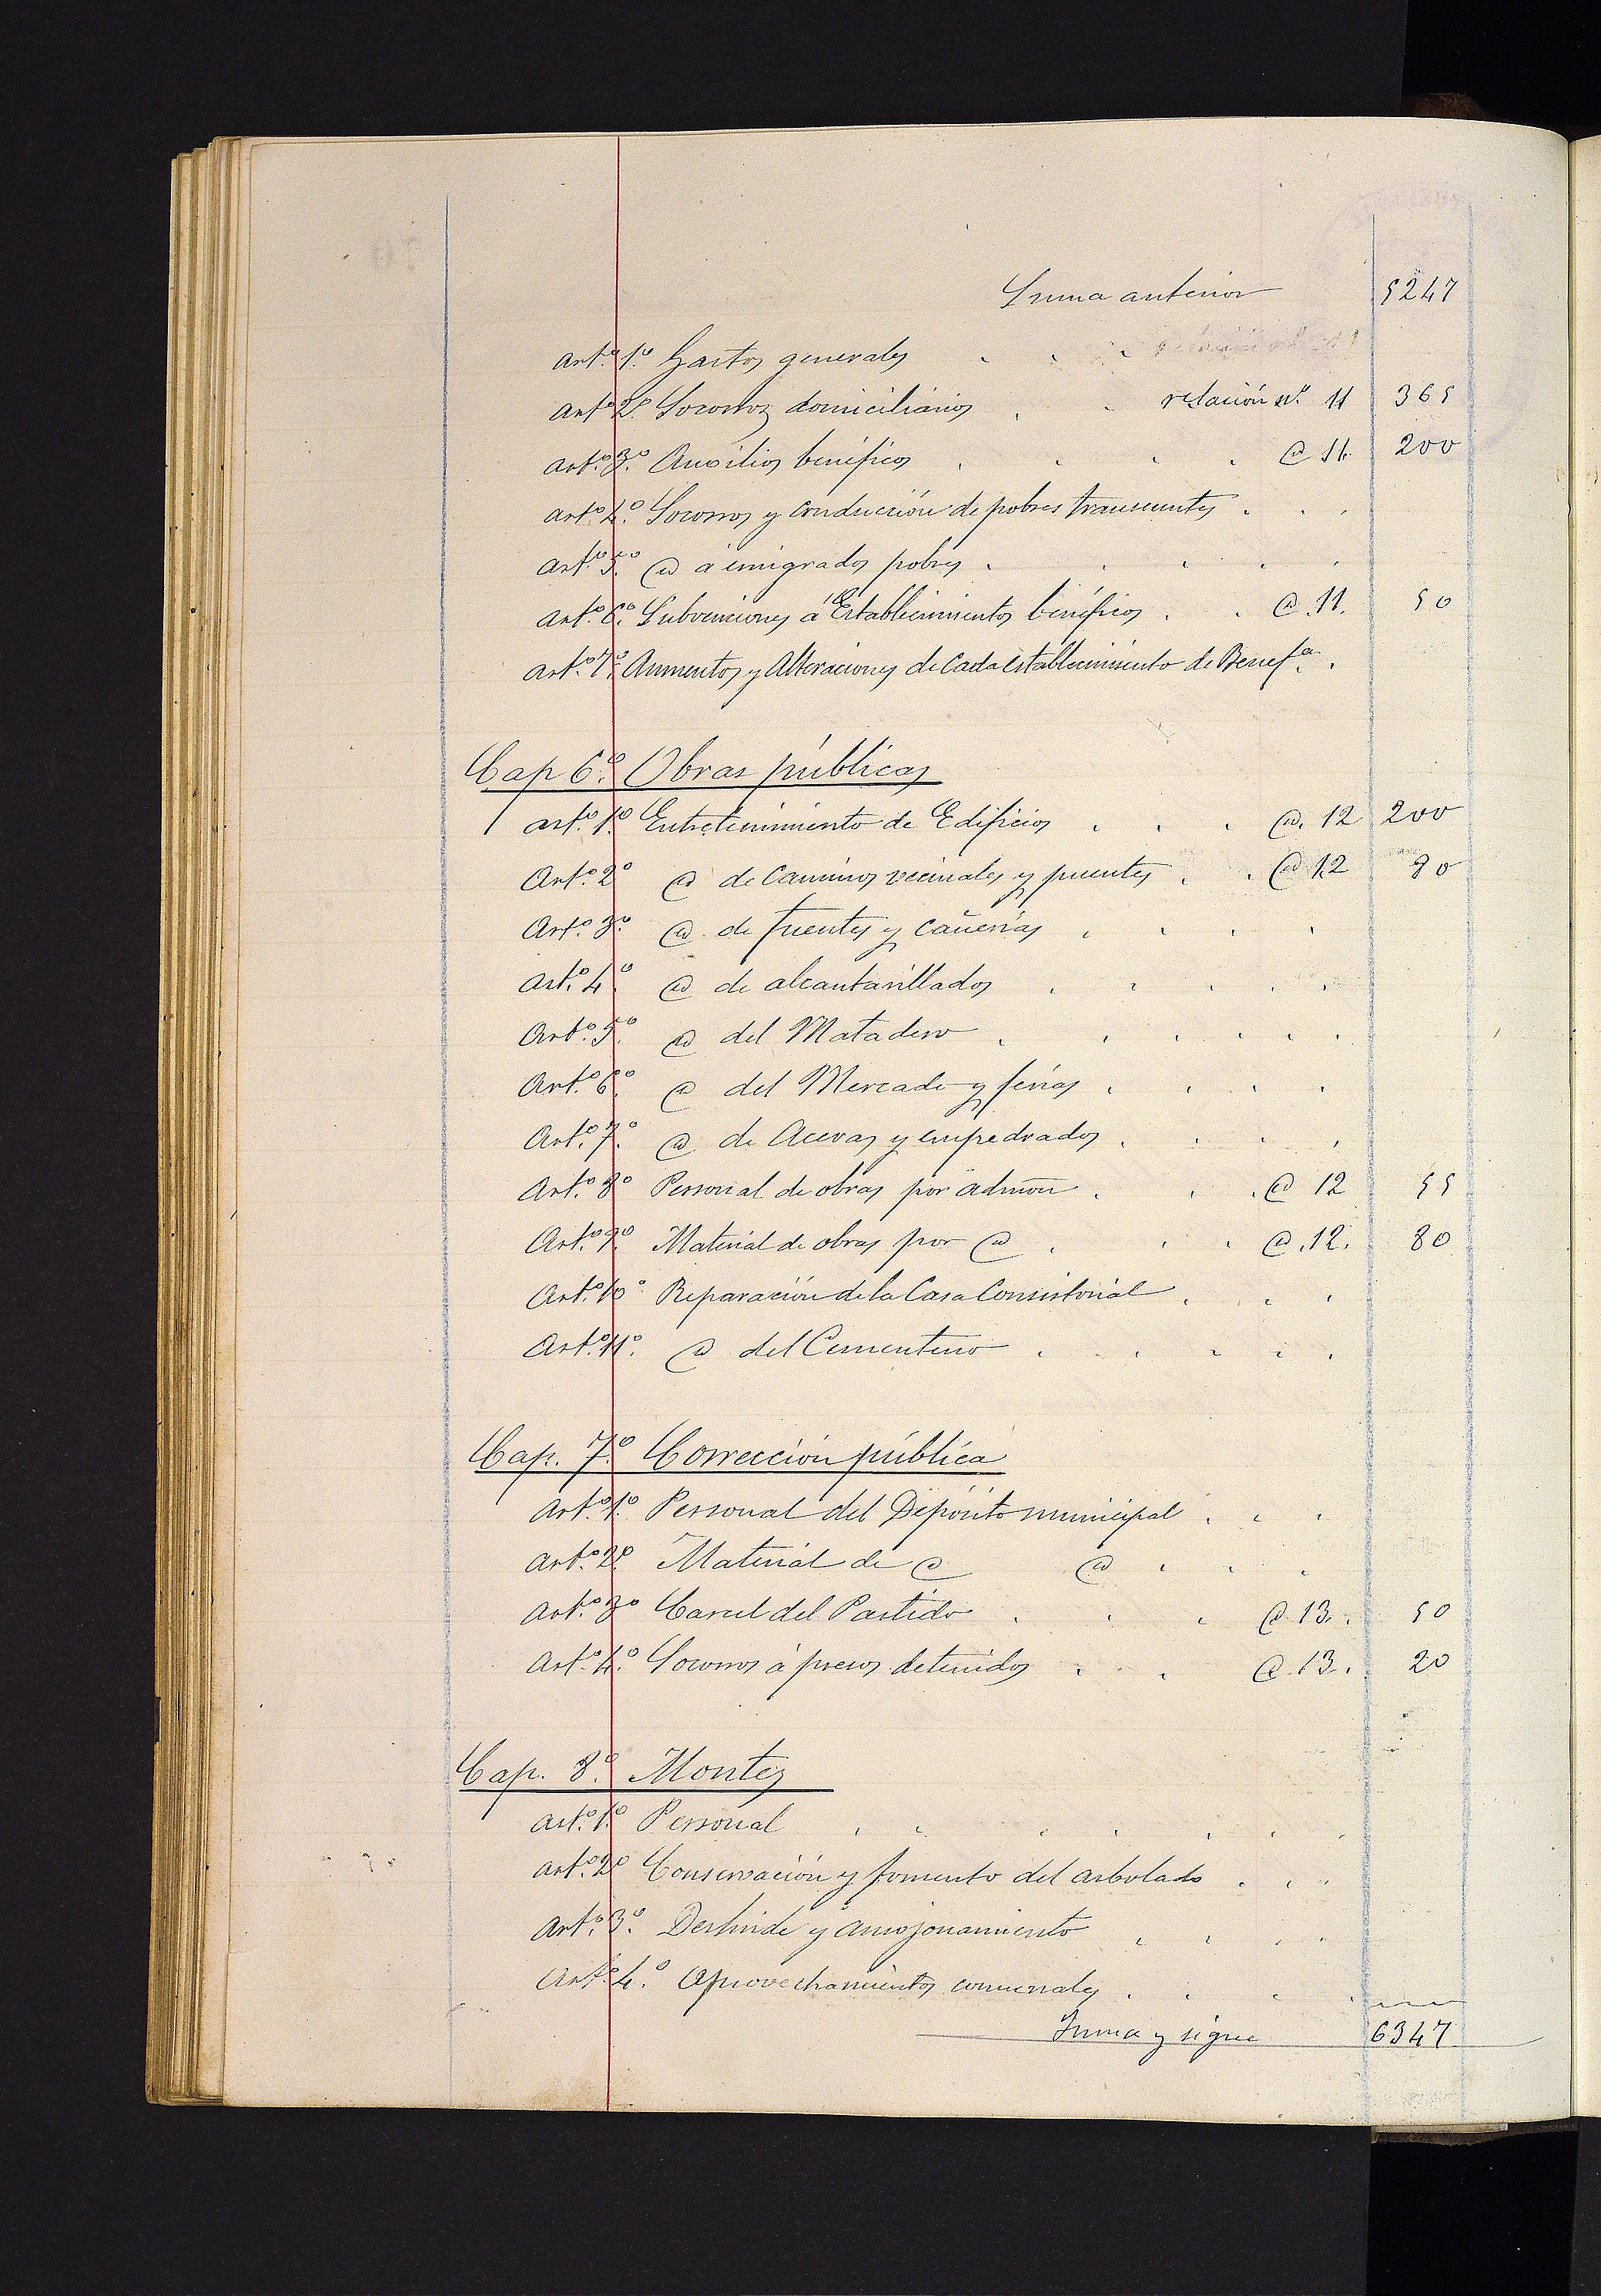 Suma anterior 5247
Artº. 1º. Gastos generales . . .
Artº 2º. Socorros domiciliarios . . relación nº. 11 365
Artº. 3º. Auxilios benéficos . . . . @ 11. 200
Artº 4º. Socorros y conducción de pobres transeuntes . . .
Artº. 5º. @ a emigrados pobres . . . . .
Artº. 6º. Subvenciones á Establecimientos benéficos . . @ 11. 50
Artº. 7º. Aumentos y Alteraciones de Cada establecimiento de Benefª. .
Cap 6º. Obras públicas
Artº. 1º. Entretenimiento de Edificios . . . @. 12 200
Artº. 2º @ de Caminos vecinales y puentes . . @ 12 80
Artº. 3º. @ de fuentes y cañerías . . . .
Artº. 4º @ de alcantarillados . . . . .
Artº. 5º. @ del Matadero . . . . . .
Artº. 6º. @ del Mercado y ferias . . . .
Artº. 7º. @ de Aceras y empedrados . . . .
Artº. 8º Personal de obras por admon . . . @ 12 55
Artº. 9º. Material de obras por @ . . . @. 12. 80
Artº. 10º Reparación de la Casa Consistorial . . .
Artº. 11º. @ del Cementerio . . . . .
Cap. 7º. Corrección pública
Artº. 1º. Personal del Depósito municipal . . .
Artº. 2º Material de @ @ . . .
Artº. 3º Carcel del Partido . . . @ 13. . 50
Artº. 4º. Socorros á presos detenidos . . @ 13. . 20
Cap. 8º. Montes
Artº. 1º. Personal . . . . . . .
Artº. 2º Conservación y fomento del arbolado . . .
Artº. 3º. Deslinde y amojonamiento . . . .
Artº. 4.º Aprovechamientos comunales . . . .
Suma y sigue 6347